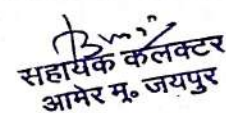 सहायक कलक्टर
आमेर मू. जयपुर